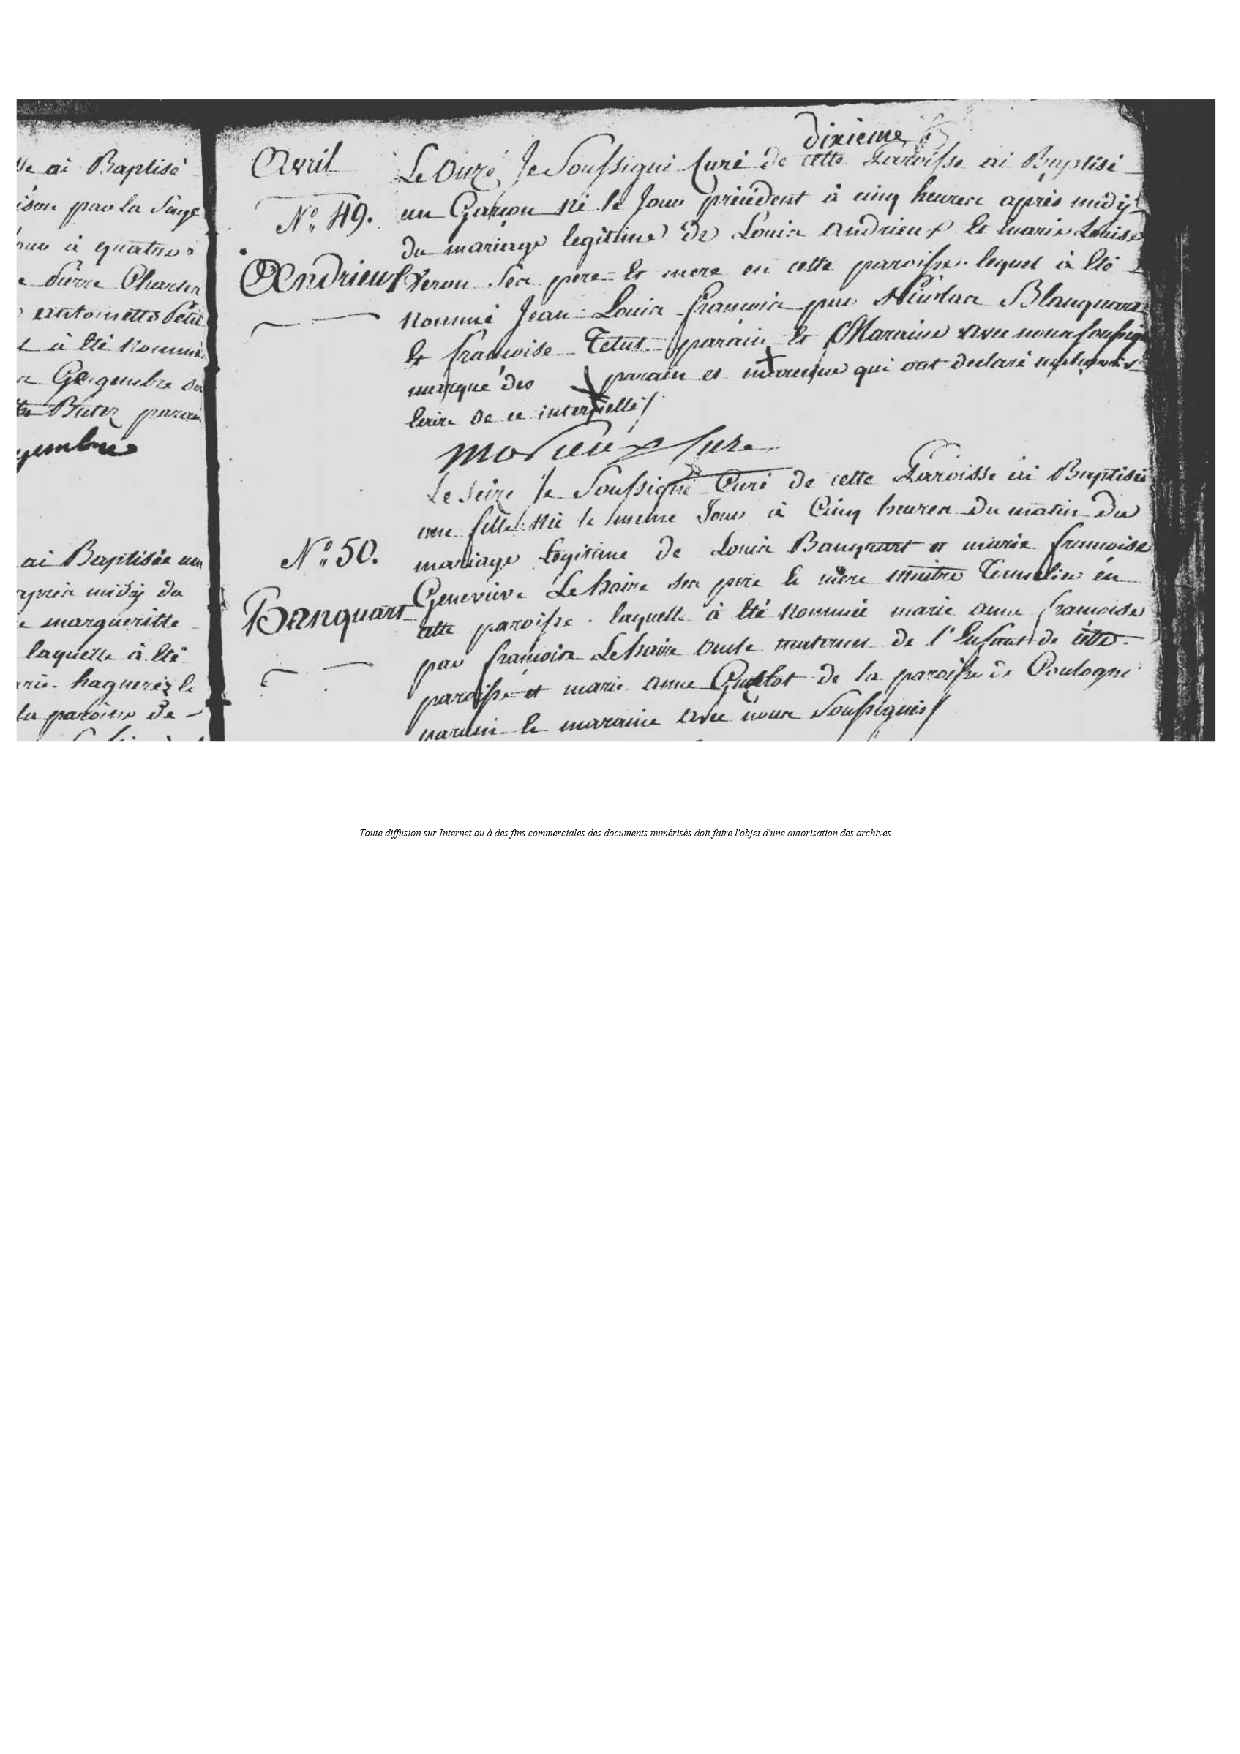 le ai Baptisé
ison par la Sage
à quatre
Pierre Charles
antoinette Petit
à été Nommé
Gergembre
Butez parain
gembre
ai Baptisée un
après midÿ du
marguerite
laquelle à été
haguerez le
la paroisse de
dixieme
Avril
Le Onze Je Soussigné Curé de cette Paroisse ai Baptisé
N.° 49.
un Garçon né le Jour précédent à cinq heures après midÿ
du mariage legitime de Louis Andrieux et marie Louise
Andrieux
veron ses pere et mere en cette paroisse lequel à été
Nommé Jean Louis françois par Nicolas Blanquart
et françoise Tetut parain et Maraine avec nous soussigné
marque des parain et maraine qui ont declaré
Ecrire de ce interpellé/
morieux Cure
Le Seize Je Soussigné Curé de cette Paroisse ai Baptisée
une fille née le meme Jour à Cinq heures du matin du
N.° 50.
mariage legitime de Louis Banquart et marie françoise
Banquart
Geneviéve Lehaire ses pere et mere maitre en
cette paroisse laquelle à été nommée marie anne françoise
par françois Lehaire oncle maternel de l'Enfant de cette
paroisse et marie anne de la paroisse de Coulogne
parain et maraine avec nous Soussignés/
Toute diffusion sur Internet ou à des fins commerciales des documents numérisés doit faire l'objet d'une autorisation des archives